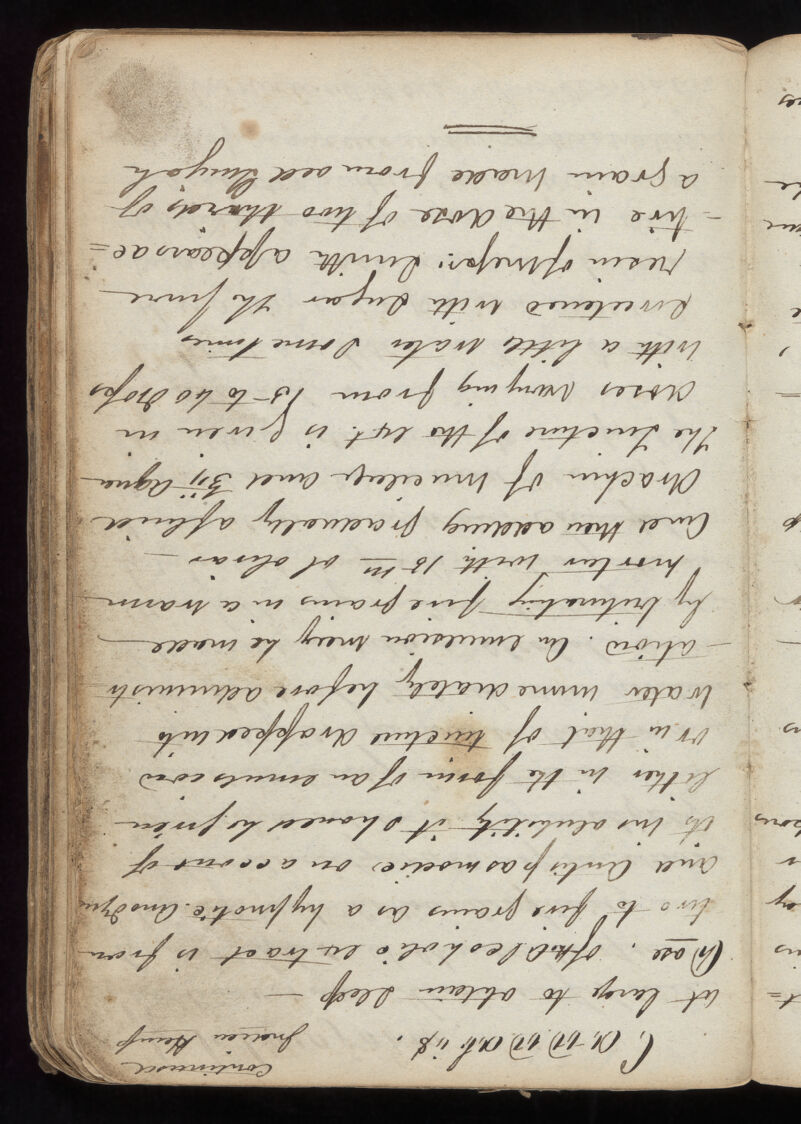 Continuance
Indian Hemp
at large to obtain sleep —
Dose. Of the Alcoholic extract is from
two to five grains as a hypnotic anodyn
and antispasmodic, on account of
its insolubility it should be given
either in the form of an emulsion
or in that of tincture dropped into
water immediately before administr
–ation. An emulsion may be made
by triturating five grains in a warm
mortar with 15 m ol olivar —
and then adding gradually a fluid
drachm of mucilage and ℥ij aqua
The tincture of the ext. is given in
doses varying from 15 to 40 drops
with a little water sometimes
sweetened with sugar The pure
resin of Messrs. Smith appears ac=
–tive in the dose of two thirds of
a grain made from